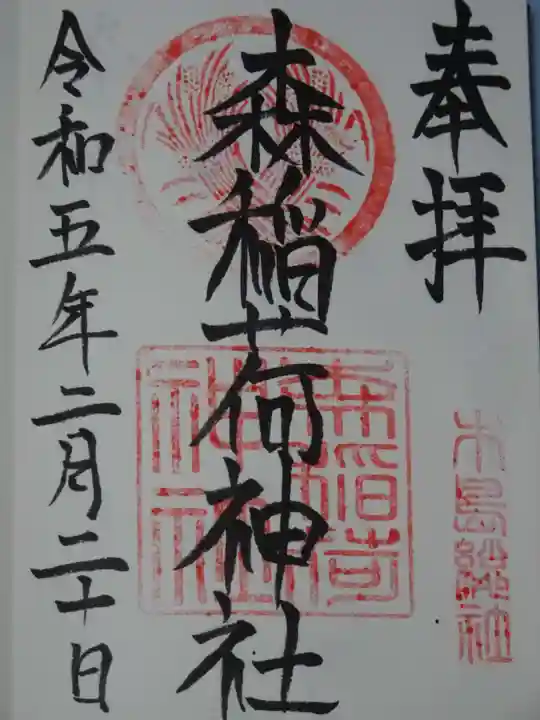 奉拝
木島総社
森稲荷神社
森稲荷神社
令和五年二月二十日